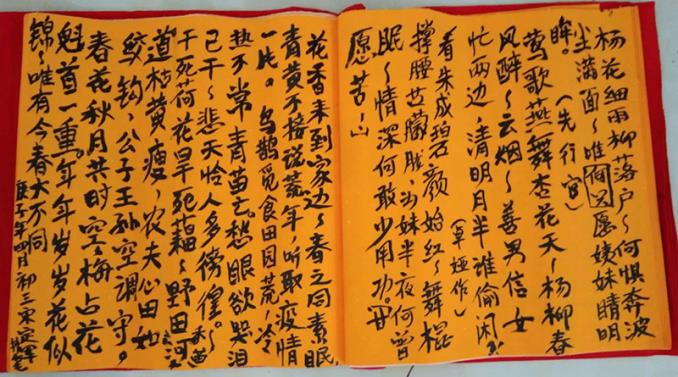 杨花细雨柳落户～何惧奔波
尘满面～唯愿姨妹睛明
眸。（先行宫）
莺歌燕舞杏花天～杨柳春
风醉～云烟～善男信女
忙两边，清明月半谁偷闲
（草娅作）
看朱成碧颜始红～舞棍
撑腰艾朦胧，为妹半夜何曾
眠～情深何敢少用功。
愿苦～山
花香来到家边～春之同素眠
青黄不接说荒年，听取疫情
一片。乌鹊觅食田园荒～冷
热不常青苗亡，愁眼欲哭泪
已干～悲天恰人多傍徨。～禾苗
干死荷花旱死藕～野田河
道枯黄瘦，农夫心田如
绞钩，公子王孙空调守。
春花秋月共时空，梅占花
魁首一重。年年岁岁花似
锦～唯有今春大不同
庚子年四月初三